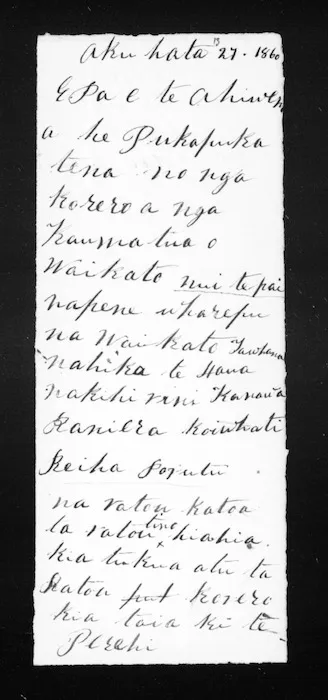 Akuhata 27. 1860
E Pa e te Ahiwera
a he Pukapuka
tena no nga
korero a nga
Kaumatua o
Waikato nui te pai
napene wharepu
na Waikato Tawhana
nahika te Haua
nakihi mni Kanaua
Raniera koiwhati
Reiha Porutu.
na ratou katoa
ta ratou tino hiahia.
kia tukua atu ta
Ratoa korero
kia taia ki te
Perehi